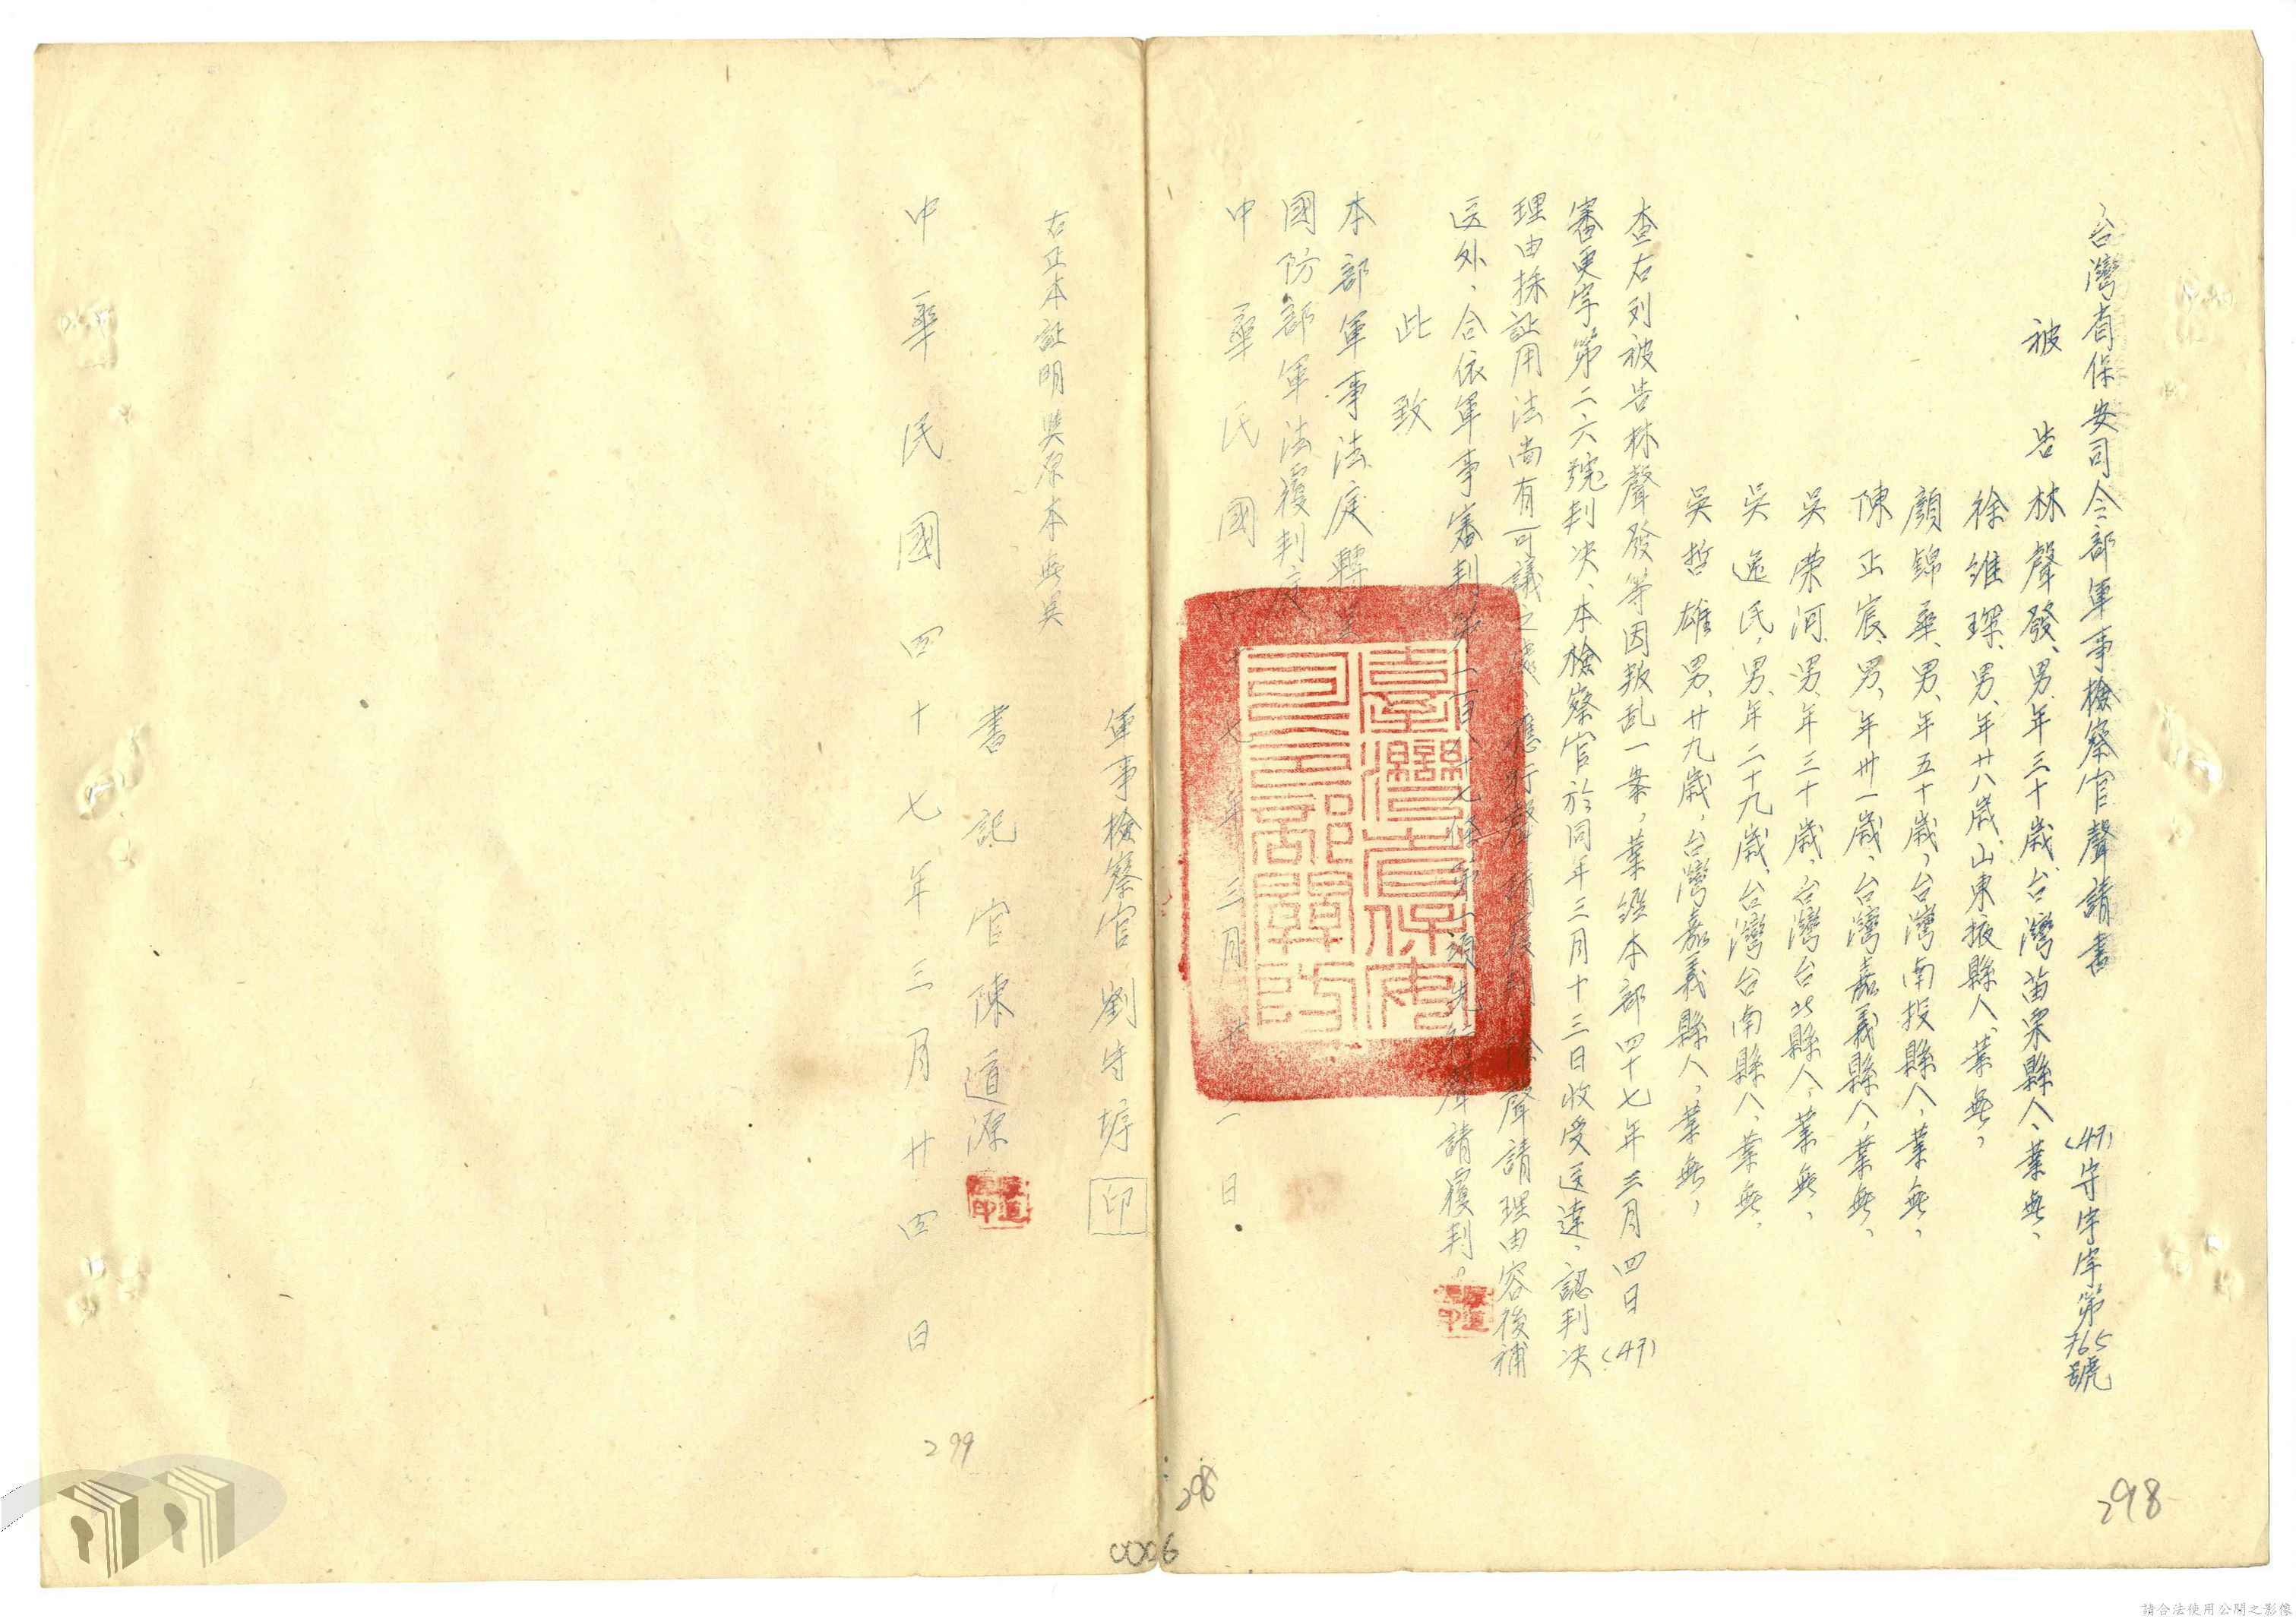 台灣省保安司令部軍事檢察官聲請書
(47)守字第765號
被告 林聲發、男、年三十歲、台灣苗栗縣人、業無、
徐維琛、男、年廿八歲、山東掖縣人、業無、
顏錦華、男、年五十歲、台灣南投縣人、業無、
陳正宸、男、年卅一歲、台灣嘉義縣人、業無、
吳荣河、男、年三十歲、台灣台北縣人、業無、
吳逸民、男、年二十九歲、台灣台南縣人、業無、
吳哲雄、男、廿九歲、台灣嘉義縣人、業無、
查右列被告林聲發等因叛乱一案，業經本部四十七年三月四日(47)
審更字第二六號判决、本檢察官於同年三月十三日收受送達、認判决
理由採証用法尚有可議之處、應行聲請覆判、除聲請理由容後補
送外、合依軍事審判法第一百八十七條第一項先行聲請覆判。
此致
本部軍事法庭轉呈
國防部軍法覆判庭
中華民國四十七年三月廿二日
臺灣省保安司令部關防
軍事檢察官 劉守埻 印
右正本証明與原本無異
書記官 陳道源
中華民國四十七年三月廿四日
298
298
299
0006
請合法使用公開之影像